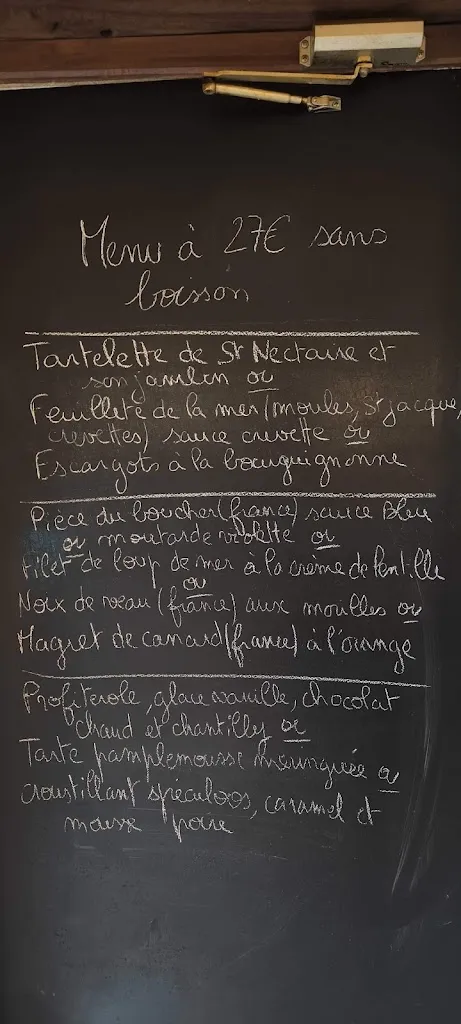 Menu à 27€ sans
boisson
Tartelette de St Nectaire et
son jambon ou
Feuilleté de la mer (moules, St jacque,
crevettes) sauce crevette ou
Escargots à la bourguignonne
Pièce du boucher (france) sauce Bleu
ou moutarde violette ou
Filet de loup de mer à la creme de lentille
ou
Noix de veau (france) aux morilles ou
Magret de canard (france) à l'orange
Profiterole, glace vanille, chocolat
chaud et chantilly ou
Tarte pamplemousse meringuée ou
croustillant spéculoos, caramel et
mousse poire